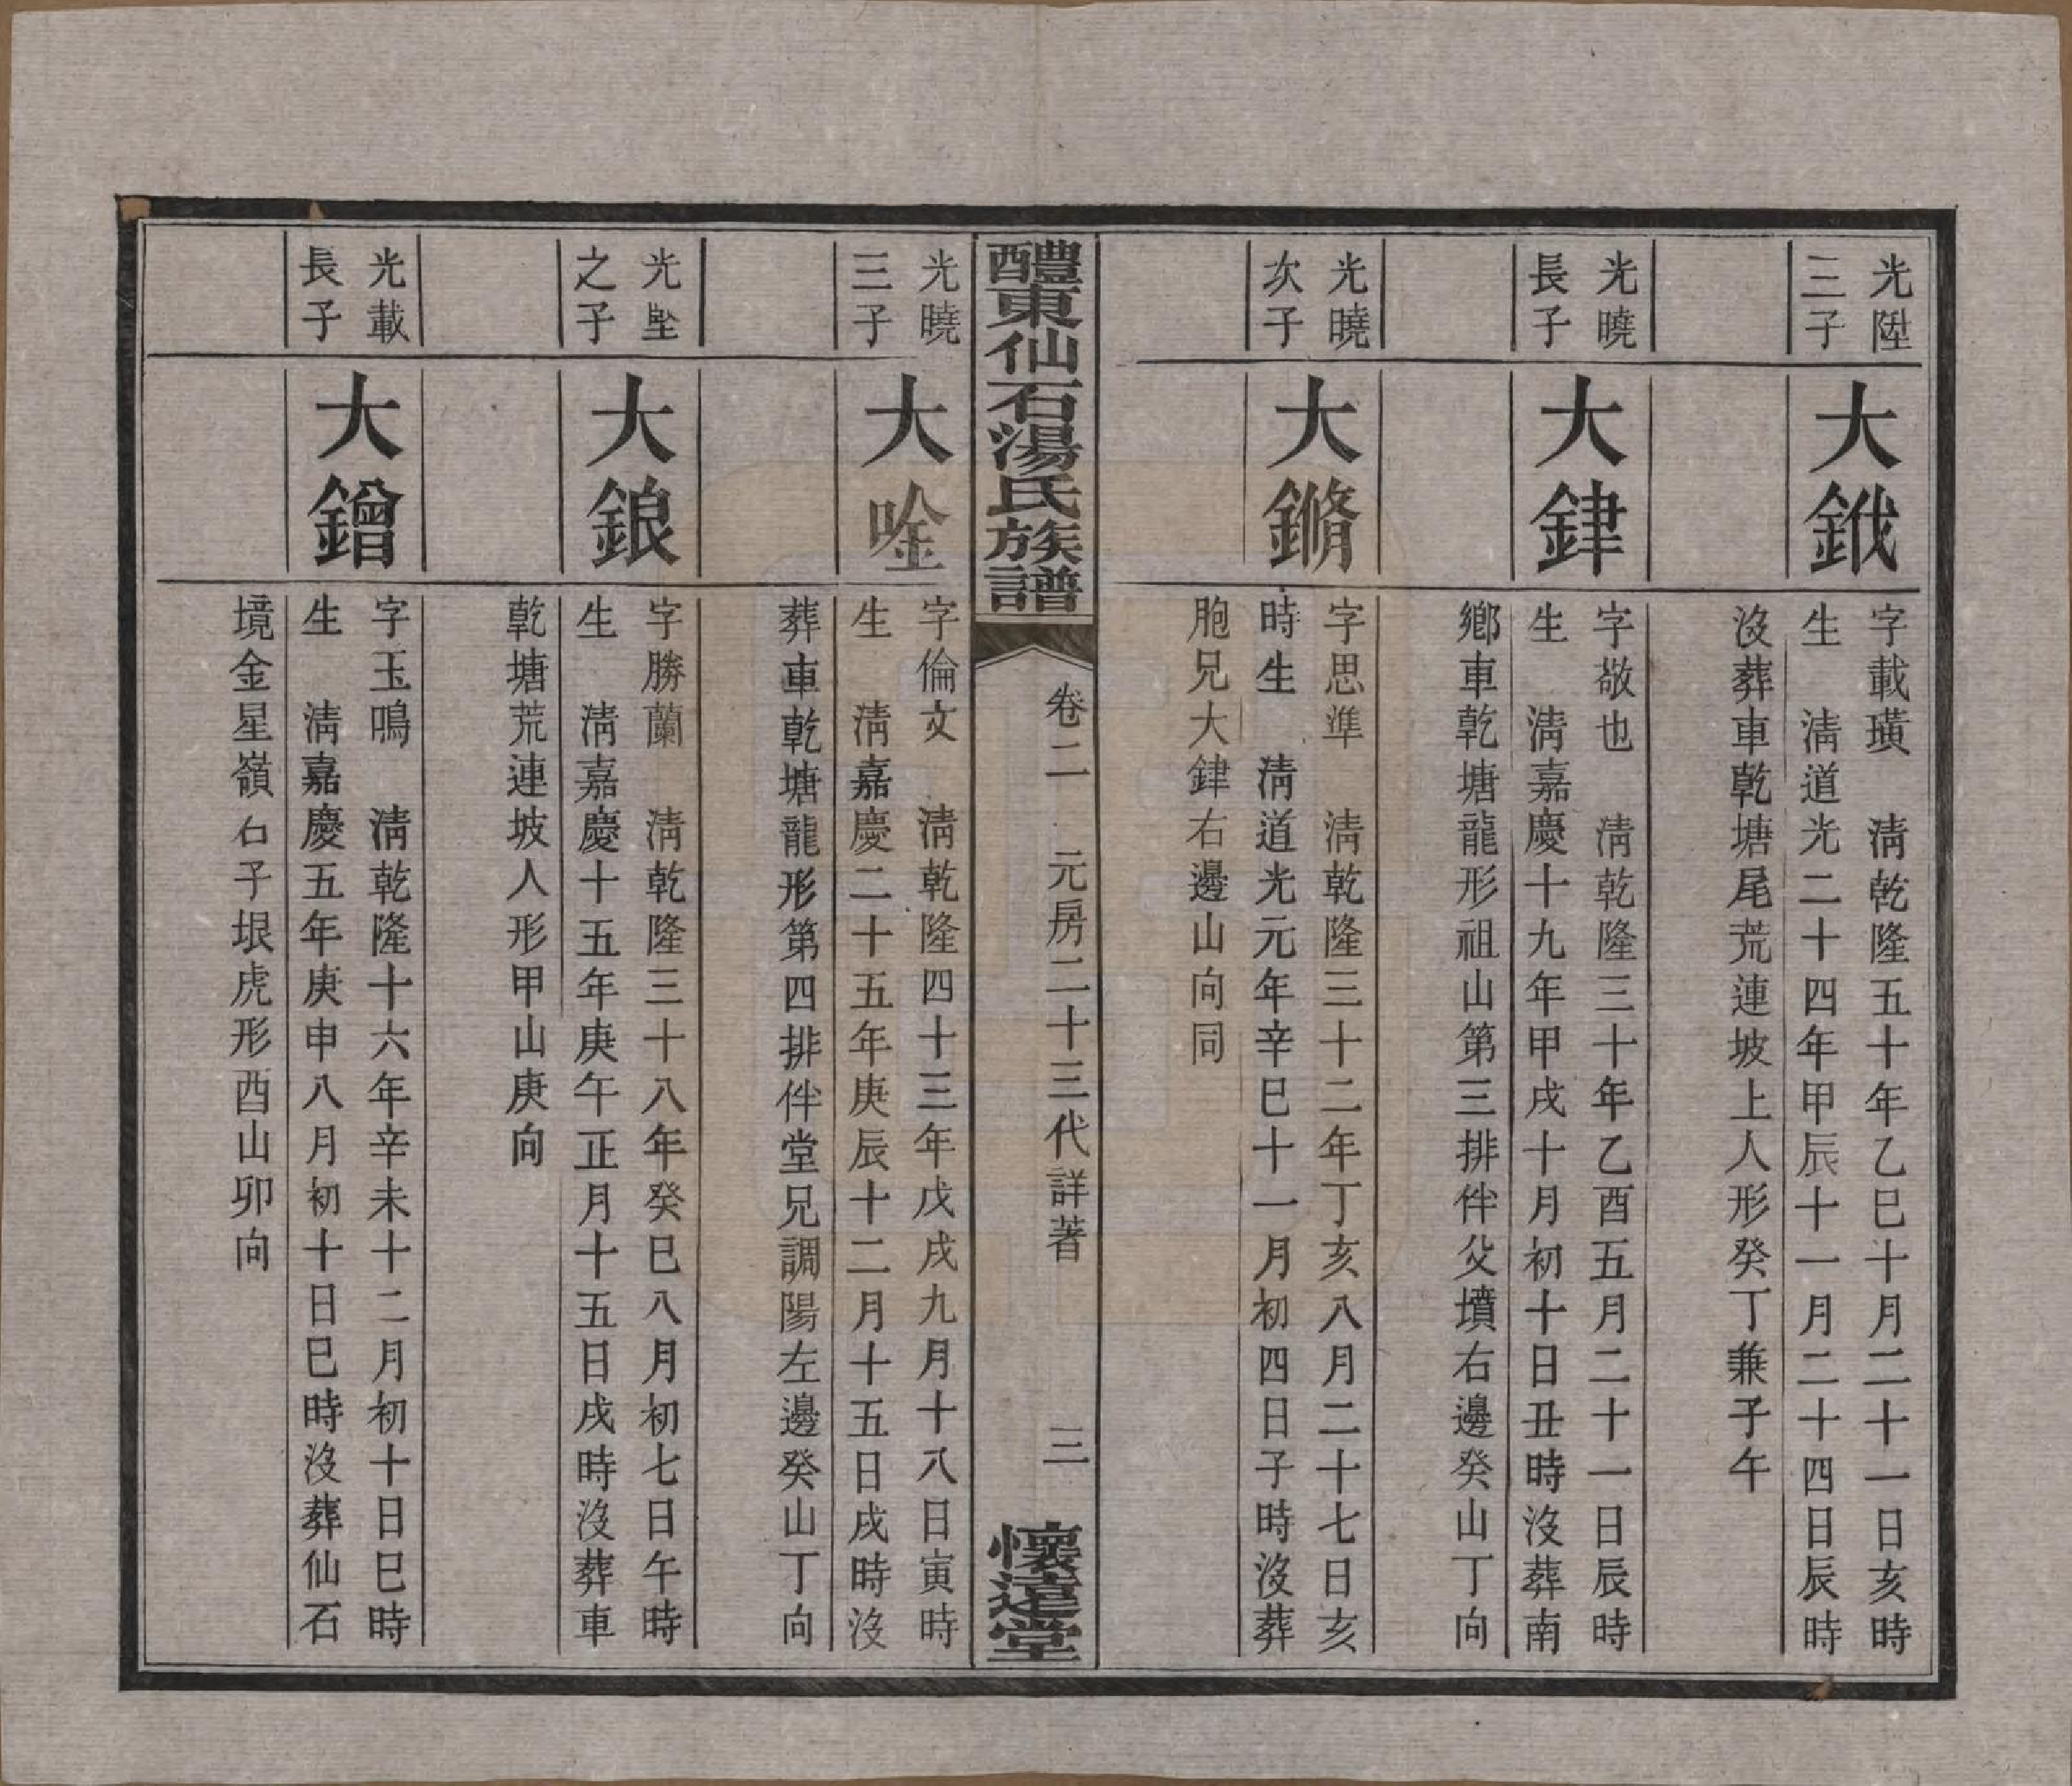 光陞
三子
大鉞
字載璜　淸乾隆五十年乙巳十月二十一日亥時
生　淸道光二十四年甲辰十一月二十四日辰時
沒葬車乾塘尾荒連坡上人形癸丁兼子午
光曉
長子
大銉
字敬也　淸乾隆三十年乙酉五月二十一日辰時
生　淸嘉慶十九年甲戌十月初十日丑時沒葬南
鄕車乾塘龍形祖山第三排伴父墳右邊癸山丁向
光曉
次子
大鏅
字思準　淸乾隆三十二年丁亥八月二十七日亥
時生　淸道光元年辛巳十一月初四日子時沒葬
胞兄大銉右邊山向同
醴東仙石湯氏族譜
卷二　元房二十三代詳著
三
懷遠堂
光曉
三子
大唫
字倫文　淸乾隆四十三年戊戌九月十八日寅時
生　淸嘉慶二十五年庚辰十二月十五日戌時沒
葬車乾塘龍形第四排伴堂兄調陽左邊癸山丁向
光坒
之子
大鋃
字勝蘭　淸乾隆三十八年癸巳八月初七日午時
生　淸嘉慶十五年庚午正月十五日戌時沒葬車
乾塘荒連坡人形甲山庚向
光載
長子
大鏳
字玉鳴　淸乾隆十六年辛未十二月初十日巳時
生　淸嘉慶五年庚申八月初十日巳時沒葬仙石
境金星嶺石子垠虎形酉山卯向